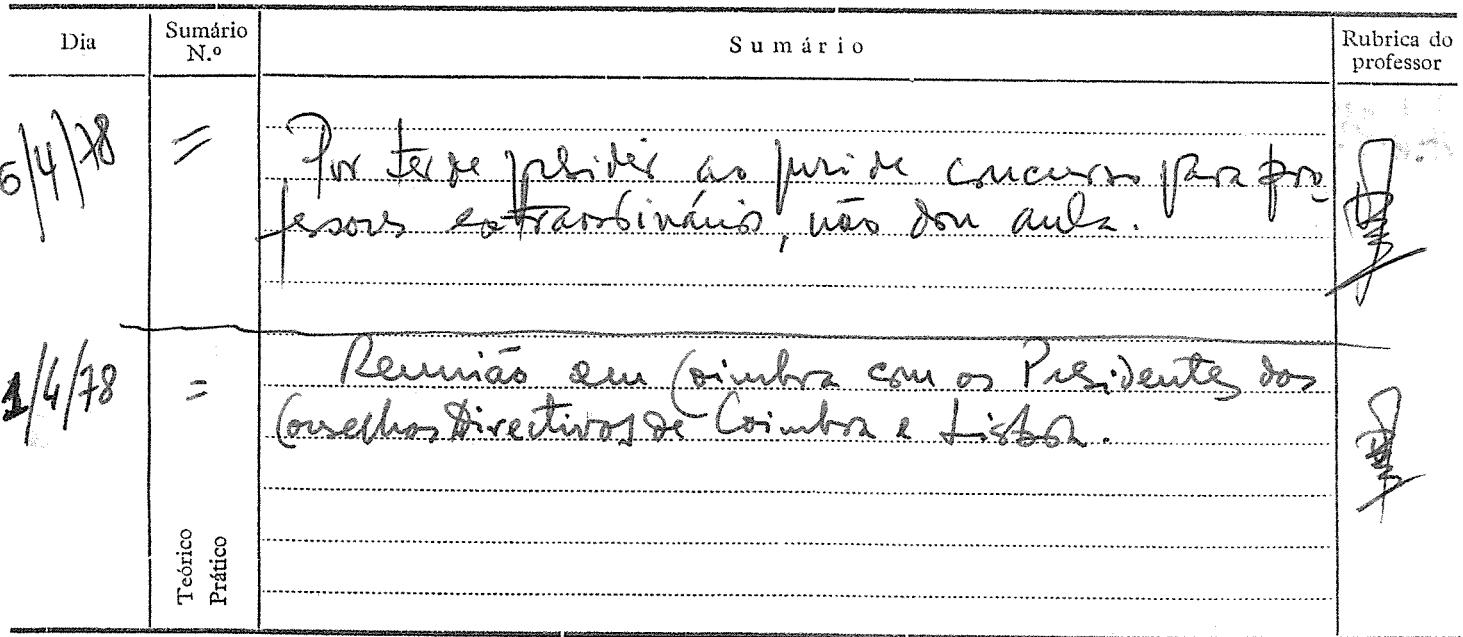 Dia Sumário N.º Sumário Rubrica do professor
5/4/78 = Por ter de presidir ao juri de concurso para pro-
fessores extraordinários, não dou aula.
1/4/78 = Reunião em Coimbra com os Presidentes dos
Conselhos Directivos de Coimbra e Lisboa.
Teórico
Prático